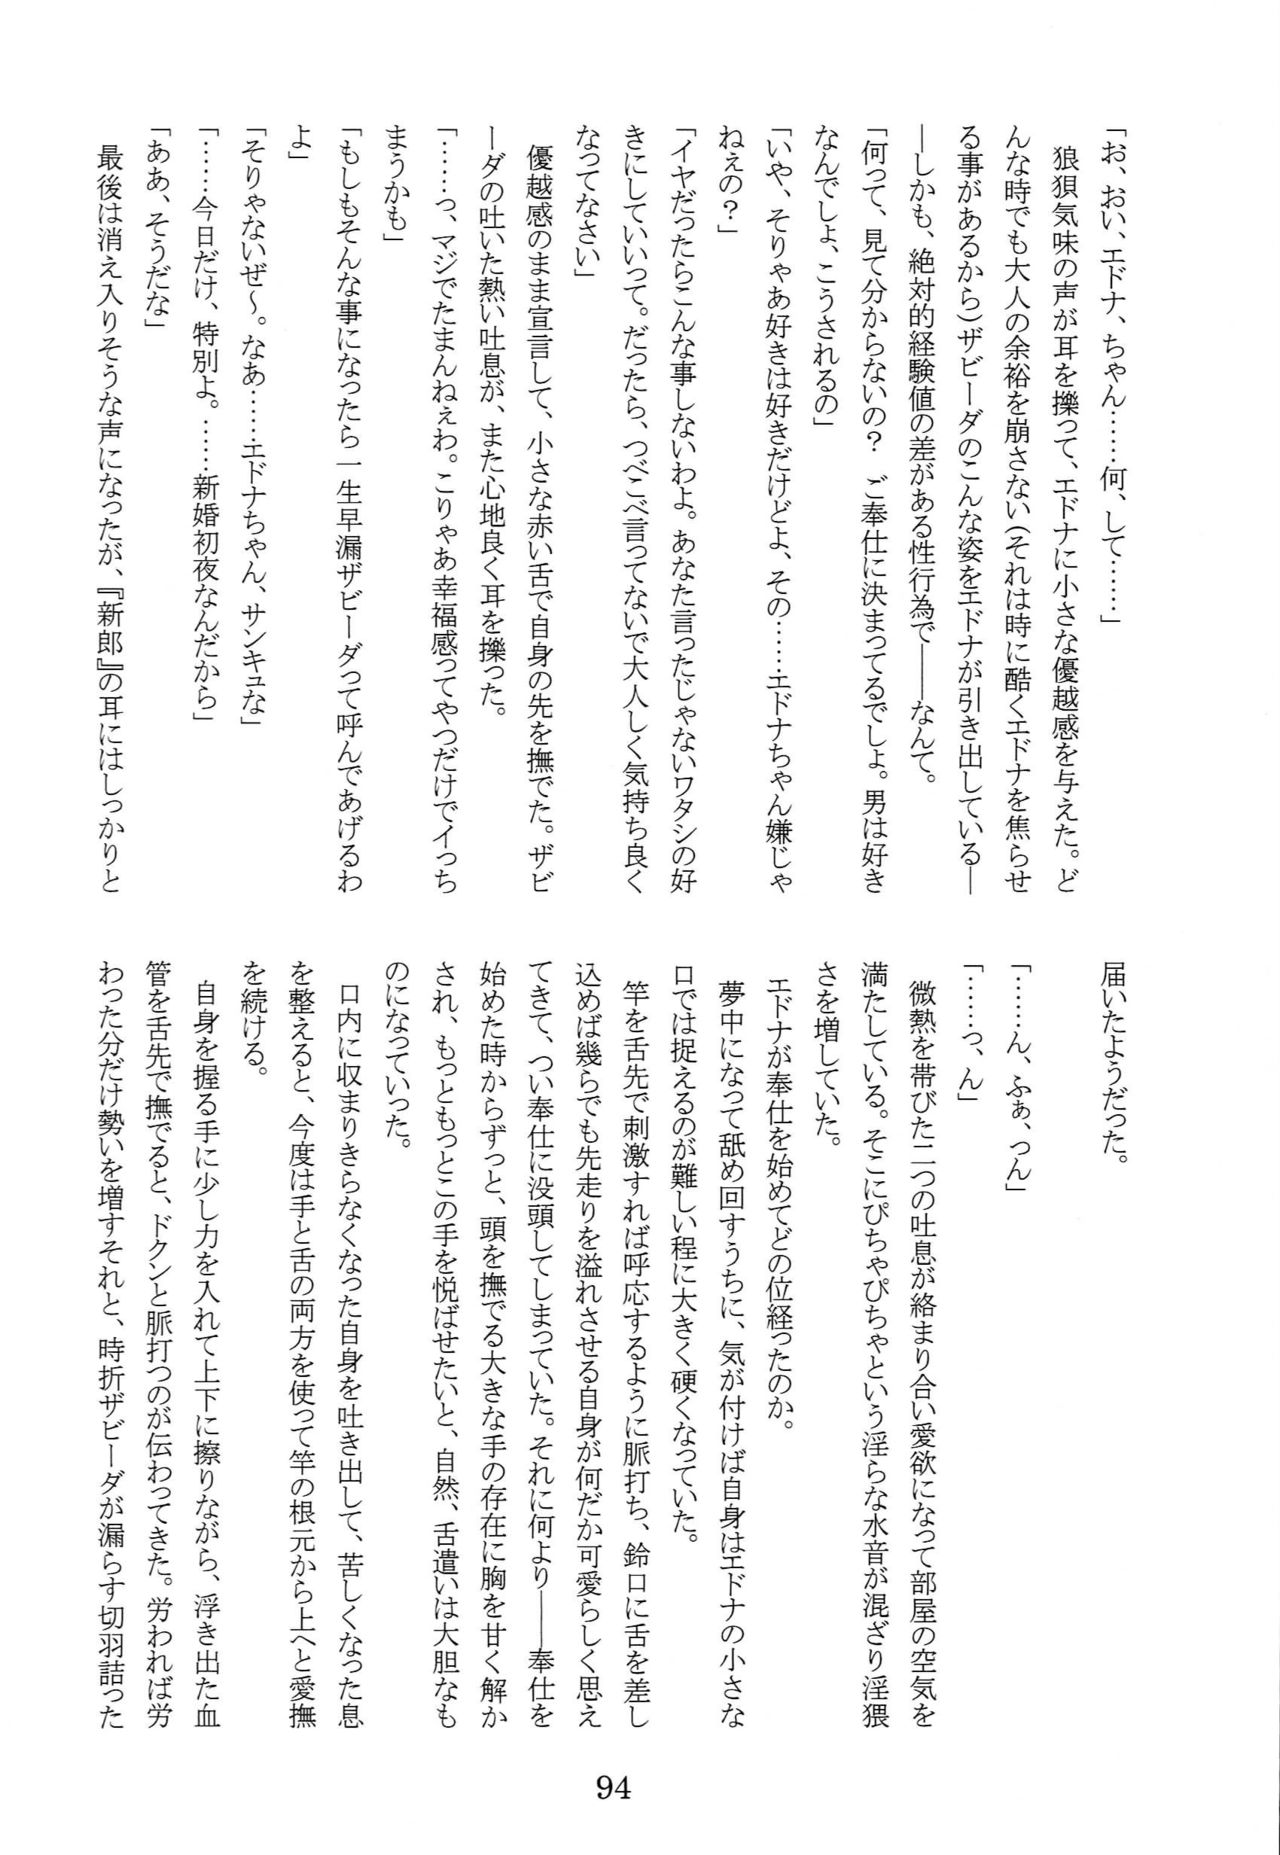 「お、おい、エドナ、ちゃん……何、して……」
狼狽気味の声が耳を擽って、エドナに小さな優越感を与えた。ど
んな時でも大人の余裕を崩さない(それは時に酷くエドナを焦らせ
る事があるから)ザビーダのこんな姿をエドナが引き出している―
―しかも、絶対的経験値の差がある性行為で――なんて。
「何って、見て分からないの？　ご奉仕に決まってるでしょ。男は好き
なんでしょ、こうされるの」
「いや、そりゃあ好きは好きだけどよ、その……エドナちゃん嫌じゃ
ねぇの？」
「イヤだったらこんな事しないわよ。あなた言ったじゃないワタシの好
きにしていいって。だったら、つべこべ言ってないで大人しく気持ち良く
なってなさい」
優越感のまま宣言して、小さな赤い舌で自身の先を撫でた。ザビ
ーダの吐いた熱い吐息が、また心地良く耳を擽った。
「……っ、マジでたまんねぇわ。こりゃあ幸福感ってやつだけでイっち
まうかも」
「もしもそんな事になったら一生早漏ザビーダって呼んであげるわ
よ」
「そりゃないぜ～。なあ……エドナちゃん、サンキュな」
「……今日だけ、特別よ。……新婚初夜なんだから」
「ああ、そうだな」
最後は消え入りそうな声になったが、『新郎』の耳にはしっかりと
届いたようだった。
「……ん、ふぁ、っん」
「……っ、ん」
微熱を帯びた二つの吐息が絡まり合い愛欲になって部屋の空気を
満たしている。そこにぴちゃぴちゃという淫らな水音が混ざり淫猥
さを増していた。
エドナが奉仕を始めてどの位経ったのか。
夢中になって舐め回すうちに、気が付けば自身はエドナの小さな
口では捉えるのが難しい程に大きく硬くなっていた。
竿を舌先で刺激すれば呼応するように脈打ち、鈴口に舌を差し
込めば幾らでも先走りを溢れさせる自身が何だか可愛らしく思え
てきて、つい奉仕に没頭してしまっていた。それに何より――奉仕を
始めた時からずっと、頭を撫でる大きな手の存在に胸を甘く解か
され、もっともっとこの手を悦ばせたいと、自然、舌遣いは大胆なも
のになっていった。
口内に収まりきらなくなった自身を吐き出して、苦しくなった息
を整えると、今度は手と舌の両方を使って竿の根元から上へと愛撫
を続ける。
自身を握る手に少し力を入れて上下に擦りながら、浮き出た血
管を舌先で撫でると、ドクンと脈打つのが伝わってきた。労われば労
わった分だけ勢いを増すそれと、時折ザビーダが漏らす切羽詰った
94